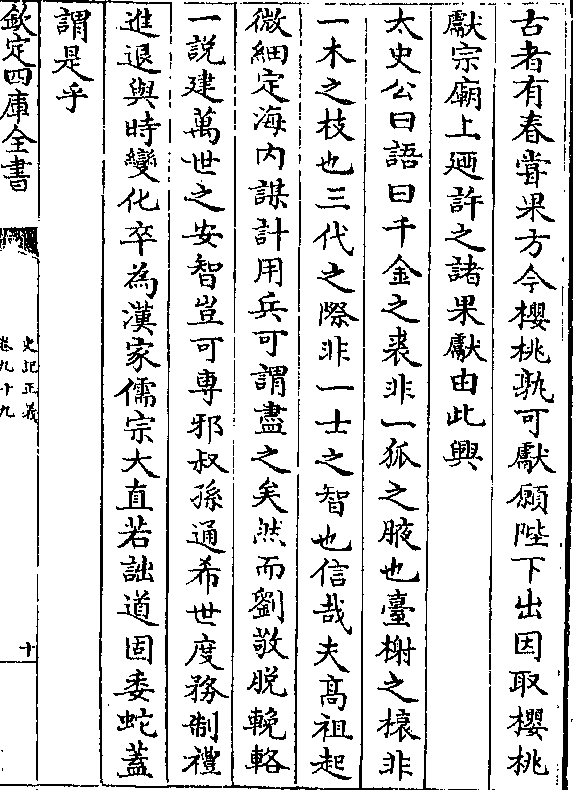 古者有春嘗果方今櫻桃孰可獻願陛下出因取櫻桃
獻宗廟上廼許之諸果獻由此興
太史公曰語曰千金之裘非一狐之腋也臺榭之榱非
一木之枝也三代之際非一士之智也信哉夫高祖起
微細定海内謀計用兵可謂盡之矣然而劉敬脱輓輅
一説建萬世之安智豈可専邪叔孫通希世度務制禮
進退與時變化卒為漢家儒宗大直若詘道固委蛇蓋
謂是乎
欽定四庫全書
史記正義
卷九十九
十